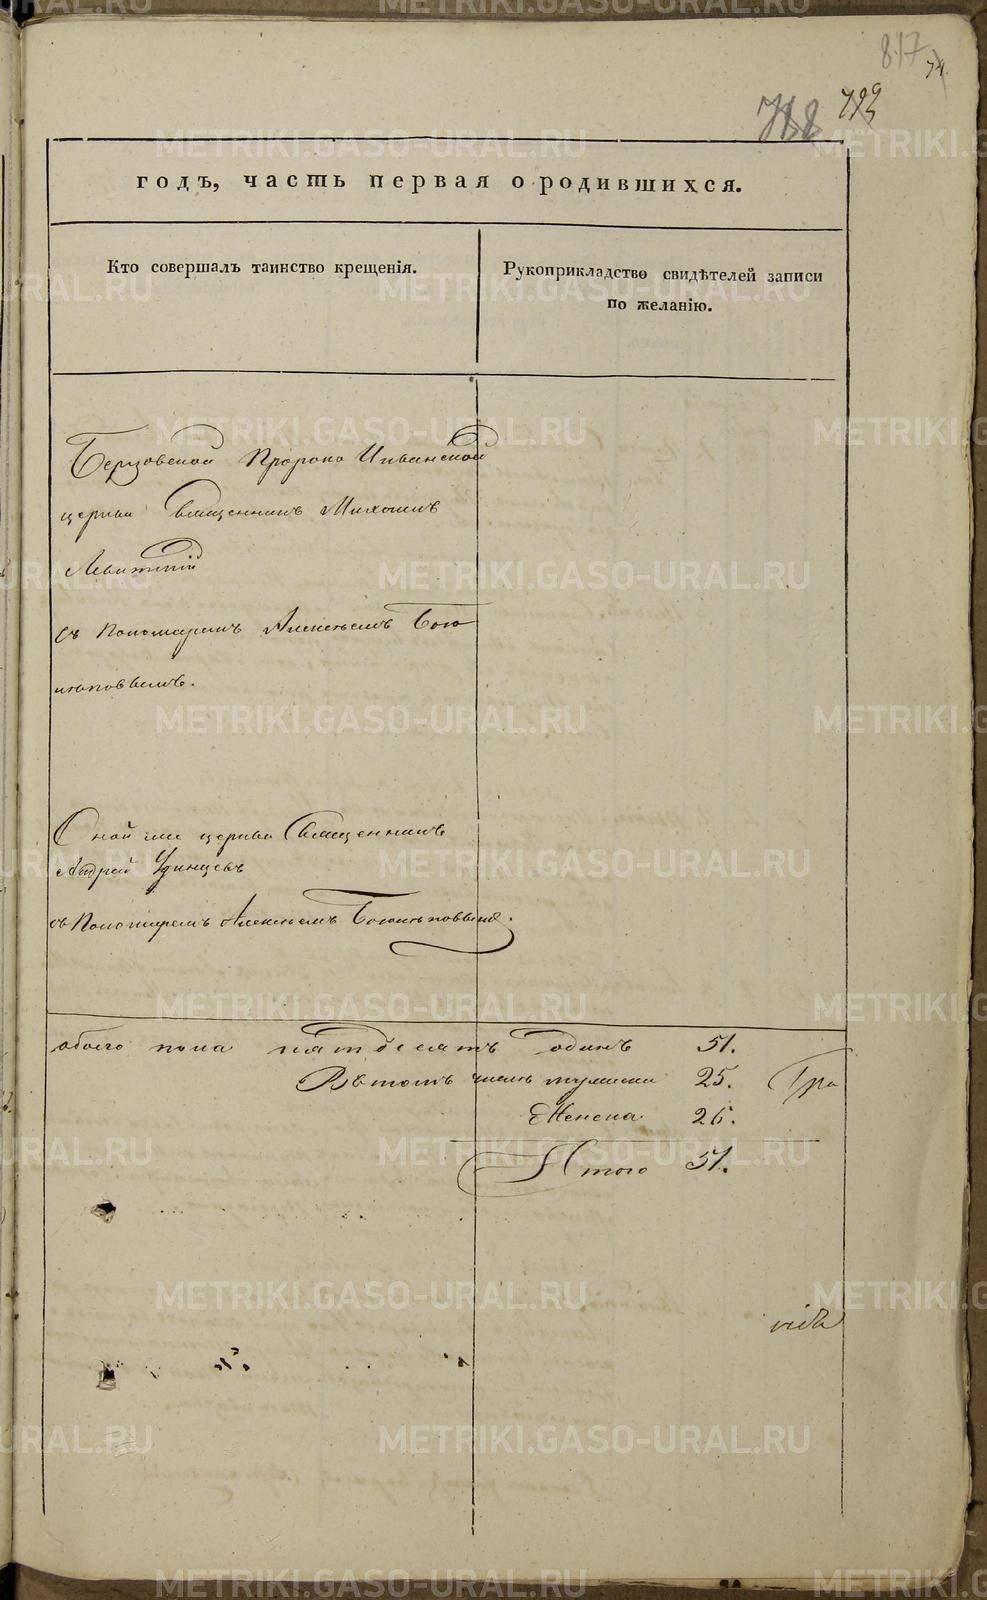 817
74
718
729
годъ, часть первая о родившихся.
Кто совершалъ таинство крещенія.
Рукоприкладство свидѣтелей записи
по желанію.
Березовской Пророко Илiинской
церкви Священникъ Михаилъ
Левитскій
съ Пономаремъ Алексѣемъ Бого
лѣповымъ.
Оной же церкви Священникъ
Андрей Удинцевъ
съ Пономаремъ Алексѣемъ Боголѣповымъ.
обоего пола пятдесятъ одинъ 51.
Въ томъ числѣ мужеска 25. Гра
Женска 26.
Итого 51.
METRIKI.GASO-URAL.RU